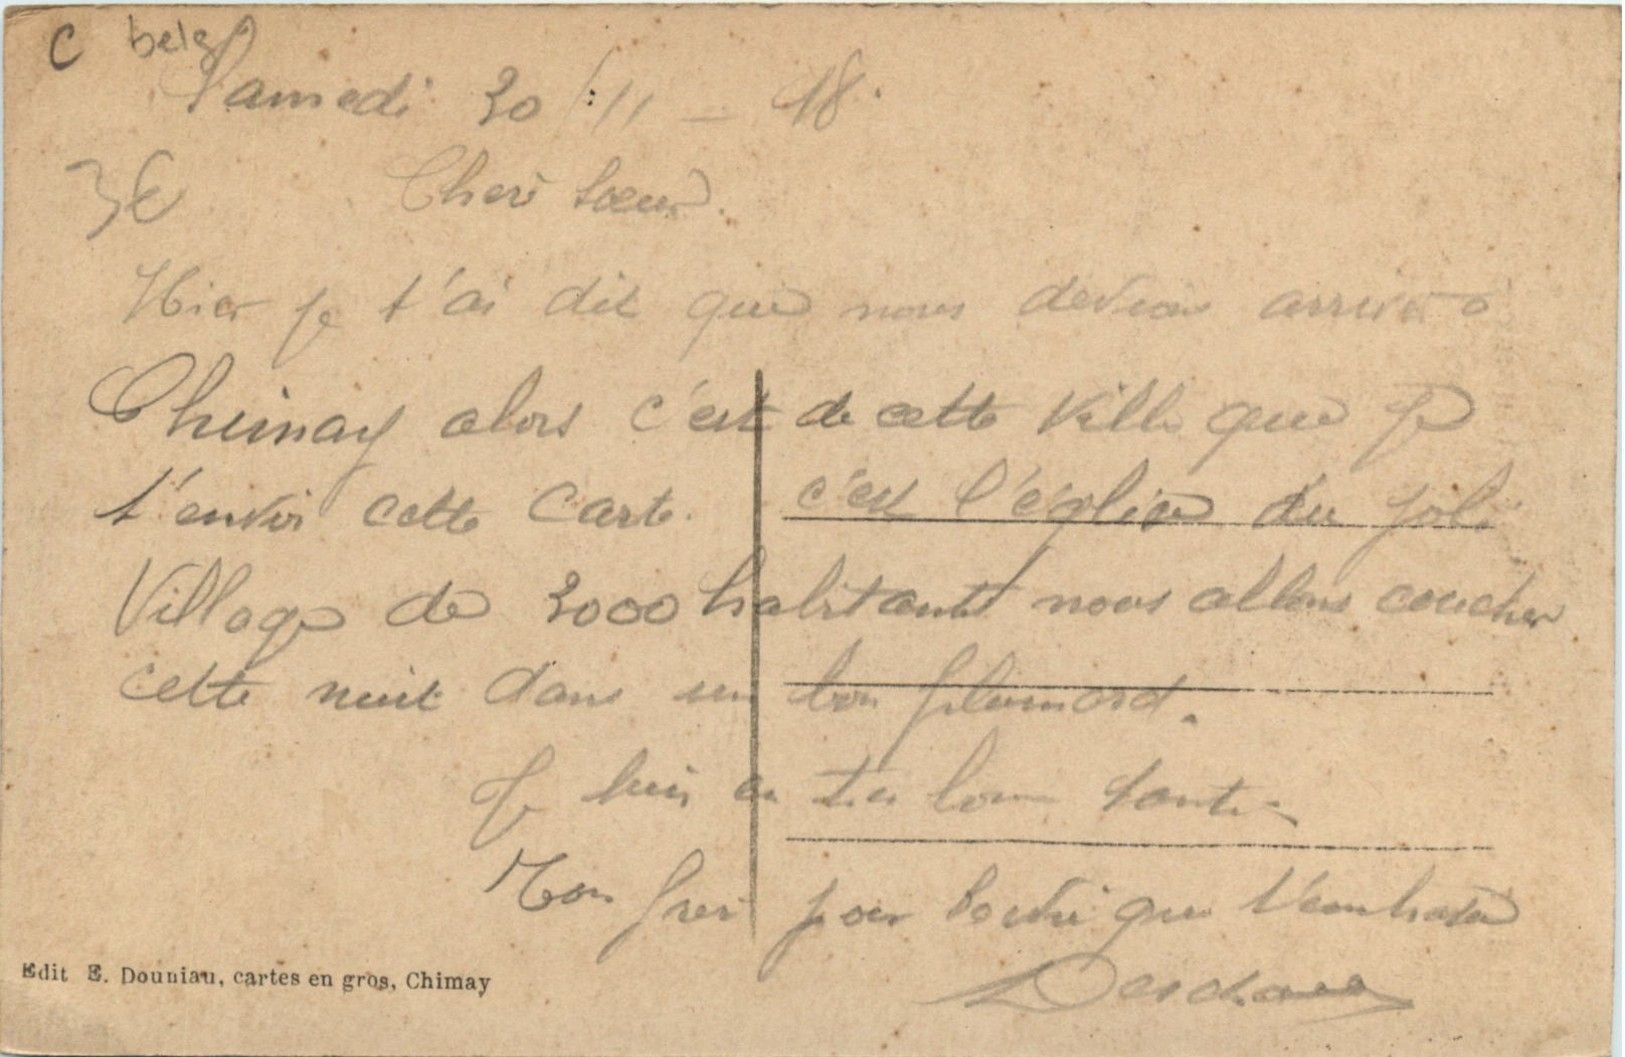 C belg
Samedi 30/11 - 18.
3€
Cheré Sœur.
Hier je t'ai dit que nous devions arrivé à
Chimay alors c'est de cette Ville que je
t'envoi cette Carte. c'est l'église du joli
Village de 3000 habitants nous allons coucher
cette nuit dans un bon plumard.
Je suis en très bonne santé
Ton frer pour la vie que t'embrasse
Edit E. Douniau, cartes en gros, Chimay